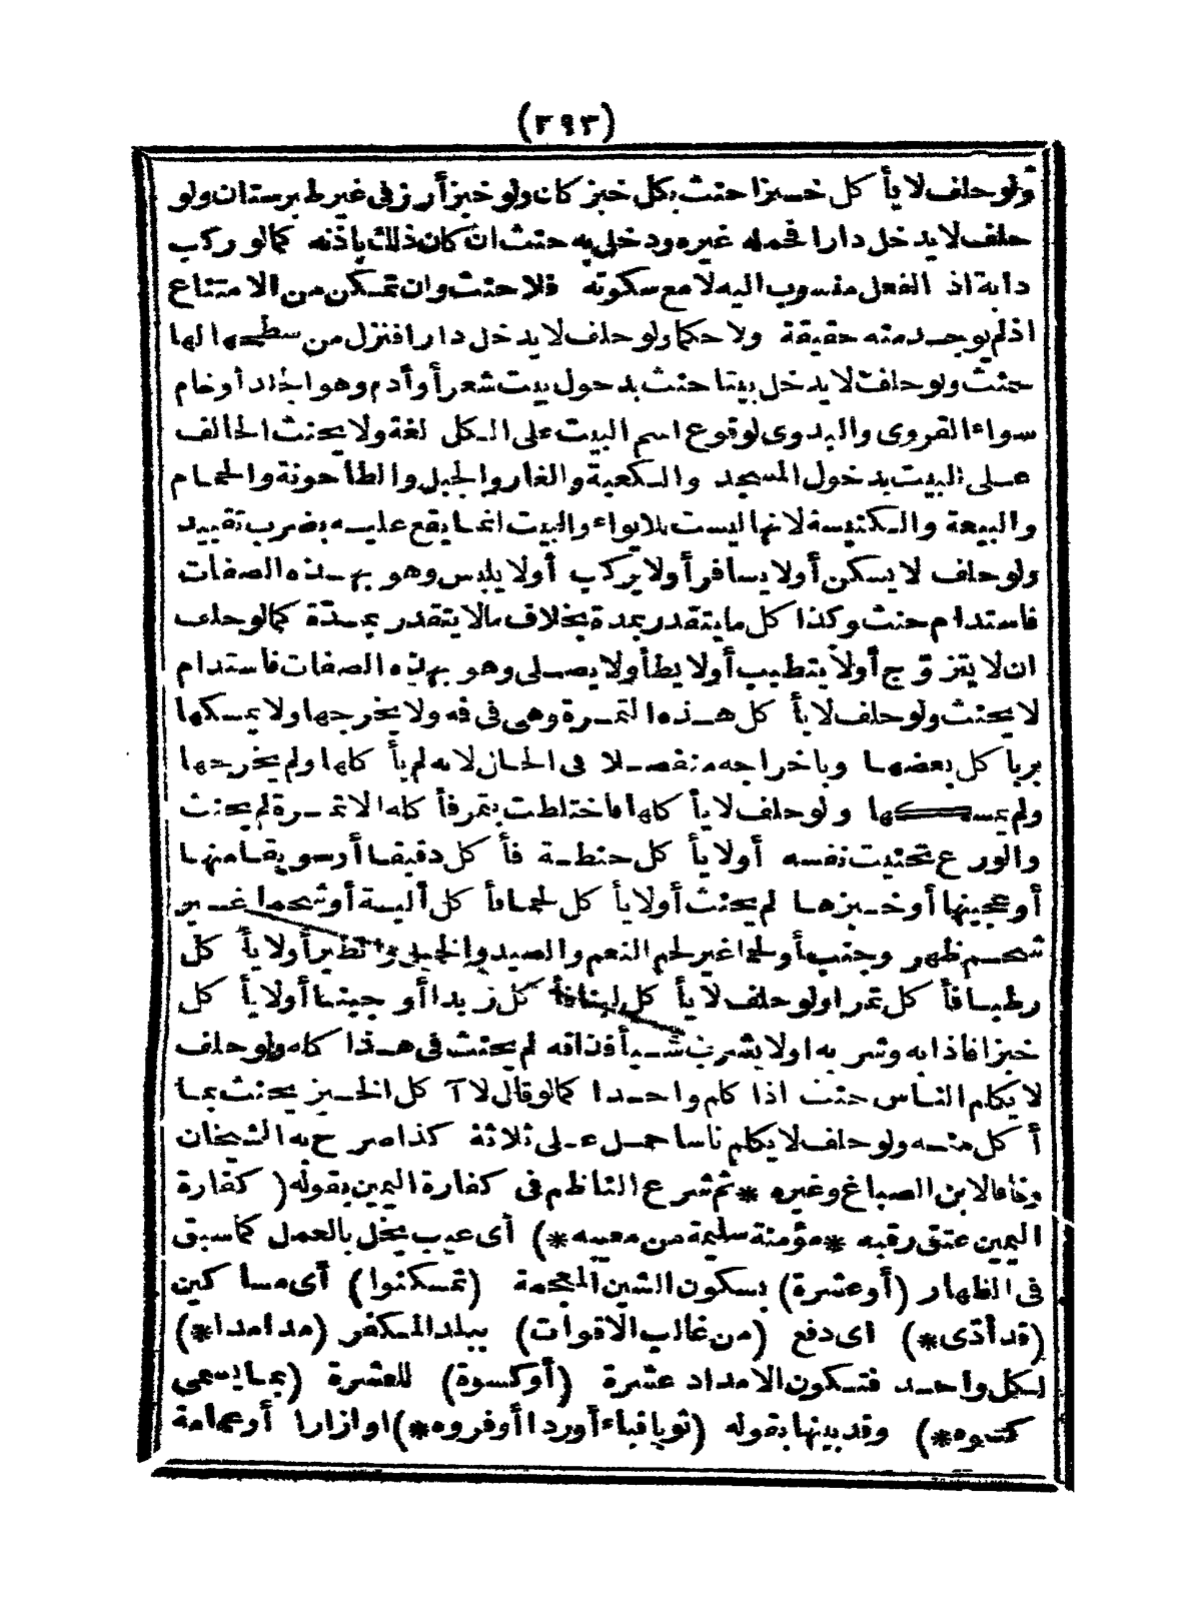 (٢٩٣)
ولو حلف لا يأكل خبزا حنث بكل خبز كان ولو خبز أرز فى غير طبرستان ولو
حلف لا يدخل دارا فحمله غيره ودخل به حنث ان كان ذلك باذنه كما لو ركب
دابة اذ الفعل منسوب اليه لا مع سكوته فلا حنث وان تمكن من الامتناع
اذ لم يوجد منه حقيقة ولا حكما ولو حلف لا يدخل دارا فنزل من سطحها لها
حنث ولو حلف لا يدخل بيتا حنث بدخول بيت شعر أو أدم وهو الجلد أو خام
سواء القروى والبدوى لوقوع اسم البيت على الكل لغة ولا يحنث الحالف
على البيت بدخول المسجد والكعبة والغار والجبل والطاحونة والحمام
والبيعة والكنيسة لانها ليست للايواء والبيت انما يقع عليه بضرب تقييد
ولو حلف لا يسكن أو لا يسافر أو لا يركب أو لا يلبس وهو بهذه الصفات
فاستدام حنث وكذا كل ما يتقدر بمدة بخلاف ما لا يتقدر بمدّة كما لو حلف
ان لا يتزوّج أو لا يتطيب أو لا يطأ ولا يصلى وهو بهذه الصفات فاستدام
لا يحنث ولو حلف لا يأكل هذه التمرة وهى فى فه ولا يخرجها ولا يمسكها
بر بأكل بعضها وباخراجه منفصلا فى الحال لانه لم يأكلها ولم يخرجها
ولم يمسكها ولو حلف لا يأكلها فاختلطت بتمر فأكله الا تمرة لم يحنث
والورع تحنيث نفسه أو لا يأكل حنطة فأكل دقيقا أو سويقا منها
أو عجينها أو خبزها لم يحنث أو لا يأكل لحما فأكل ألية أو شحما غير
شحم ظهر وجنب أو لحما غير لحم النعم والصيد والخيل والطير أو لا يأكل
رطبا فأكل تمرا ولو حلف لا يأكل لبنا فأكل زبدا أو جبنا أو لا يأكل
خبزا فاذابه وشربه او لا يشرب شيأ فذاقه لم يحنث فى هذا كله ولو حلف
لا يكلم الناس حنث اذا كلم واحدا كما لو قال لا آكل الخبز يحنث بما
أكل منه ولو حلف لا يكلم ناسا حمل على ثلاثة كذا صرح به الشيخان
وخالفا لابن الصباغ وغيره * ثم شرع الناظم فى كفارة اليمين بقوله (كفارة
اليمين عتق رقبه * مؤمنة سليمة من معيبه *) أى عيب يخل بالعمل كما سبق
فى الظهار (أو عشرة) بسكون الشين المعجمة (تمسكنوا) أى مساكين
(قد أدّى *) أى دفع (من غالب الاقوات) ببلد المكفر (مدا مدا *)
لكل واحد فتكون الامداد عشرة (أو كسوة) للعشرة (بما يسمى
كسوه *) وقد بينها بقوله (ثوبا قباء أو ردا أو فروه *) او ازارا أو عمامة